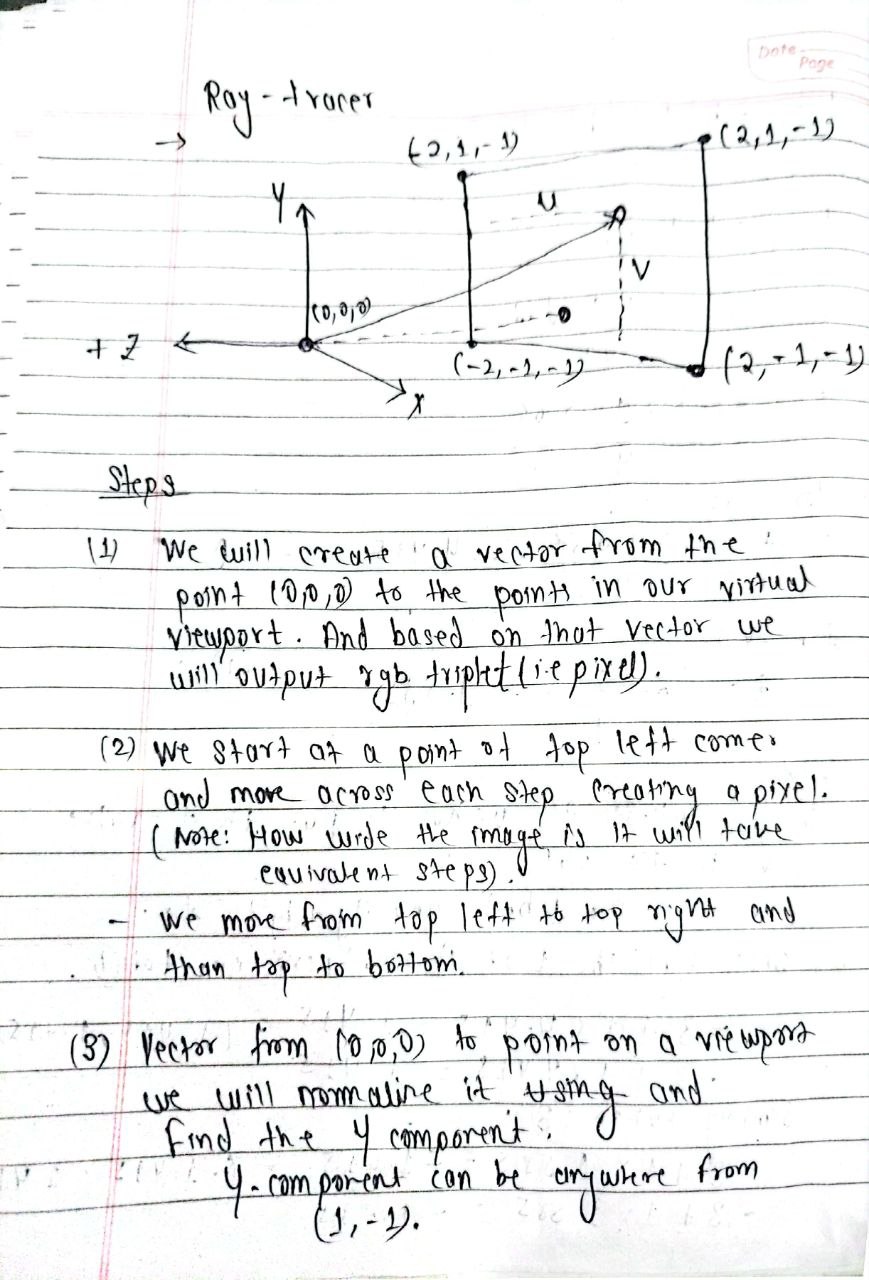 Date
Page
Ray-tracer
→
(-2,1,-1)
(2,1,-1)
Y
u
V
(0,0,0)
+Z
(-2,-1,-1)
(2,-1,-1)
X
Steps
(1) We will create a vector from the
point (0,0,0) to the points in our virtual
viewport. And based on that vector we
will output rgb triplet (i.e pixel).
(2) We start at a point of top left corner
and move across each step creating a pixel.
(Note: How wide the image is it will take
equivalent steps).
- we move from top left to top right and
than top to bottom.
(3) Vector from (0,0,0) to point on a viewport
we will normalize it using and
find the y component.
y-component can be anywhere from
(1,-1).